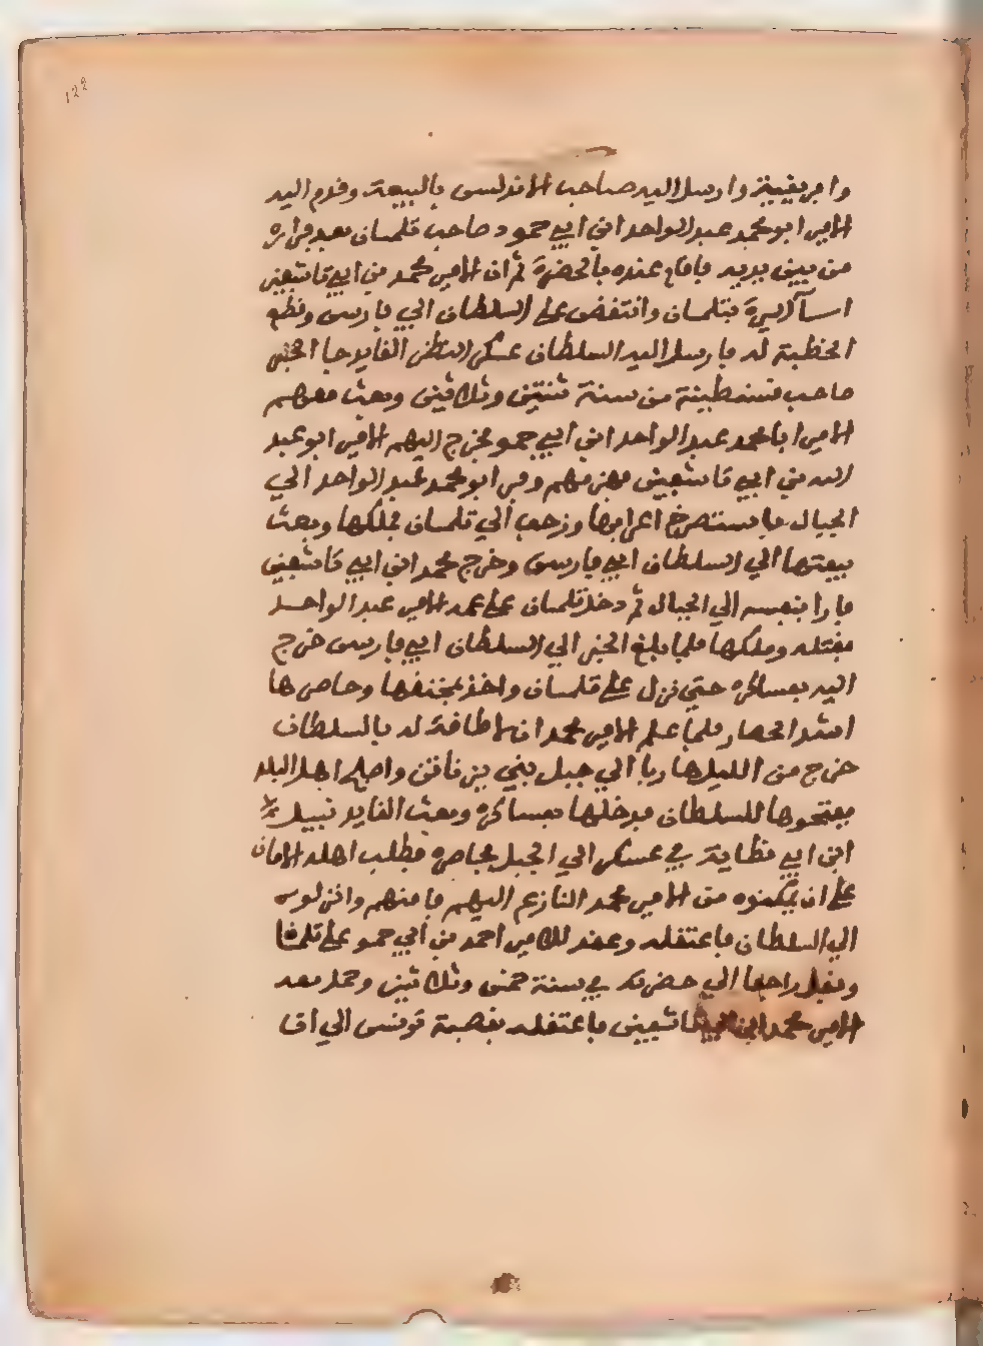 122
وافريقية وارسل اليه صاحب الاندلس بالبيعة وقدم اليه
الامير ابو محمد عبد الواحد ابن ابي حمو صاحب تلمسان بعد فراره
من بين يديه فاقام عنده بالحضرة ثم ان الامير محمد بن ابي تاشفين
اسآ السيرة بتلمسان وانتقض على السلطان ابي فارس وقطع
الخطبة له فارسل اليه السلطان عسكر النظر القايد جا الخير
صاحب قسنطينة من سنة ثنتين وثلاثين وبعث معهم
الامير ابا محمد عبد الواحد ابن ابي حمو فخرج اليهم الامير ابو عبد
الله بن ابي تاشفين فهزمهم وفر ابو محمد عبد الواحد الي
الجبال فاستصرخ اعرابها وزحف الي تلمسان فملكها وبعث
ببيعتها الي السلطان ابي فارس وخرج محمد ابن ابي تاشفين
فارا بنفسه الي الجبال ثم دخل تلمسان على عمه الامير عبد الواحد
فقتله وملكها فلما بلغ الخبر الي السلطان ابي فارس خرج
اليه بعساكره حتي نزل على تلمسان واخذ بمخنقها وحاصرها
اشد الحصار فلما علم الامير محمد ان لا طاقة له بالسلطان
خرج من الليل هاربا الي جبل بني يزناتن واصبح اهل البلد
ففتحوها للسلطان فدخلها بعساكره وبعث القايد نبيل
ابن ابي قطاية في عسكر الي الجبل فحاصره فطلب اهله الامان
على ان يمكنوه من الامير محمد النازع اليهم فامنهم وانزلوه
الي السلطان فاعتقله وعقد للامير احمد بن ابي حمو على تلمسان
وقفل راجعا الي حضرته في سنة خمس وثلاثين وحمل معه
الامير محمد ابن ابي تاشفين فاعتقله بقصبة تونس الي ان